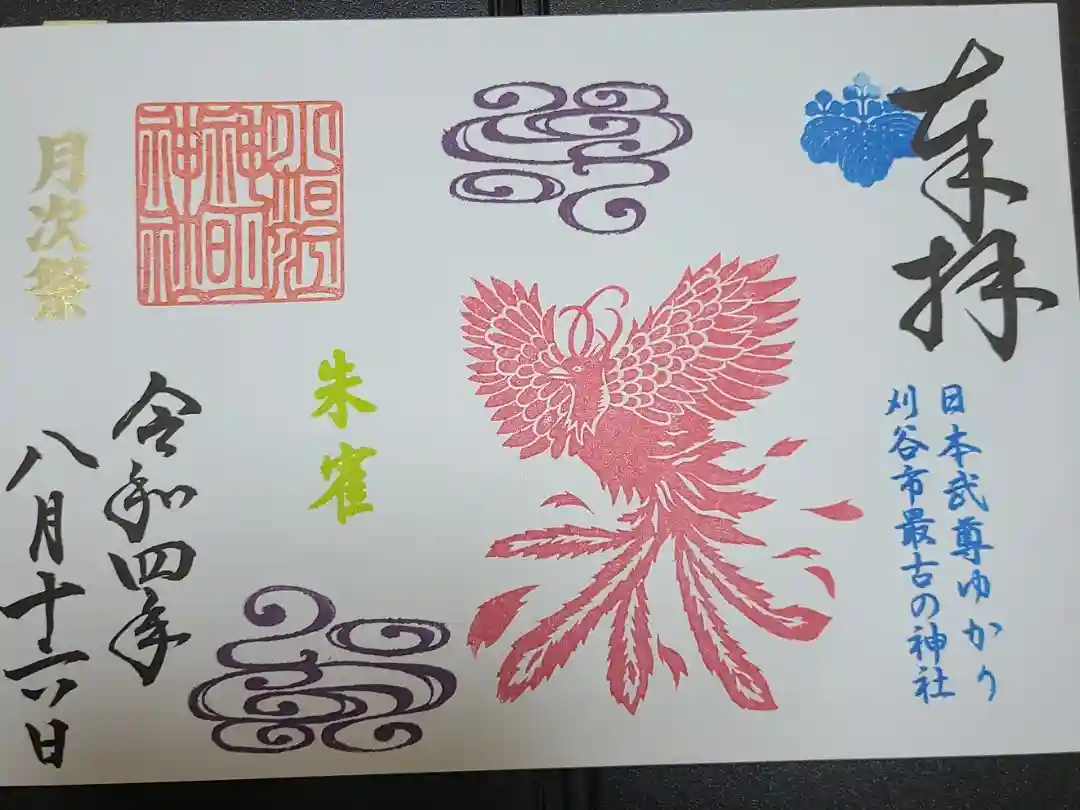 奉拝
日本武尊ゆかり
刈谷市最古の神社
朱雀
小垣江
神明
神社
令和四年
八月十六日
月次祭